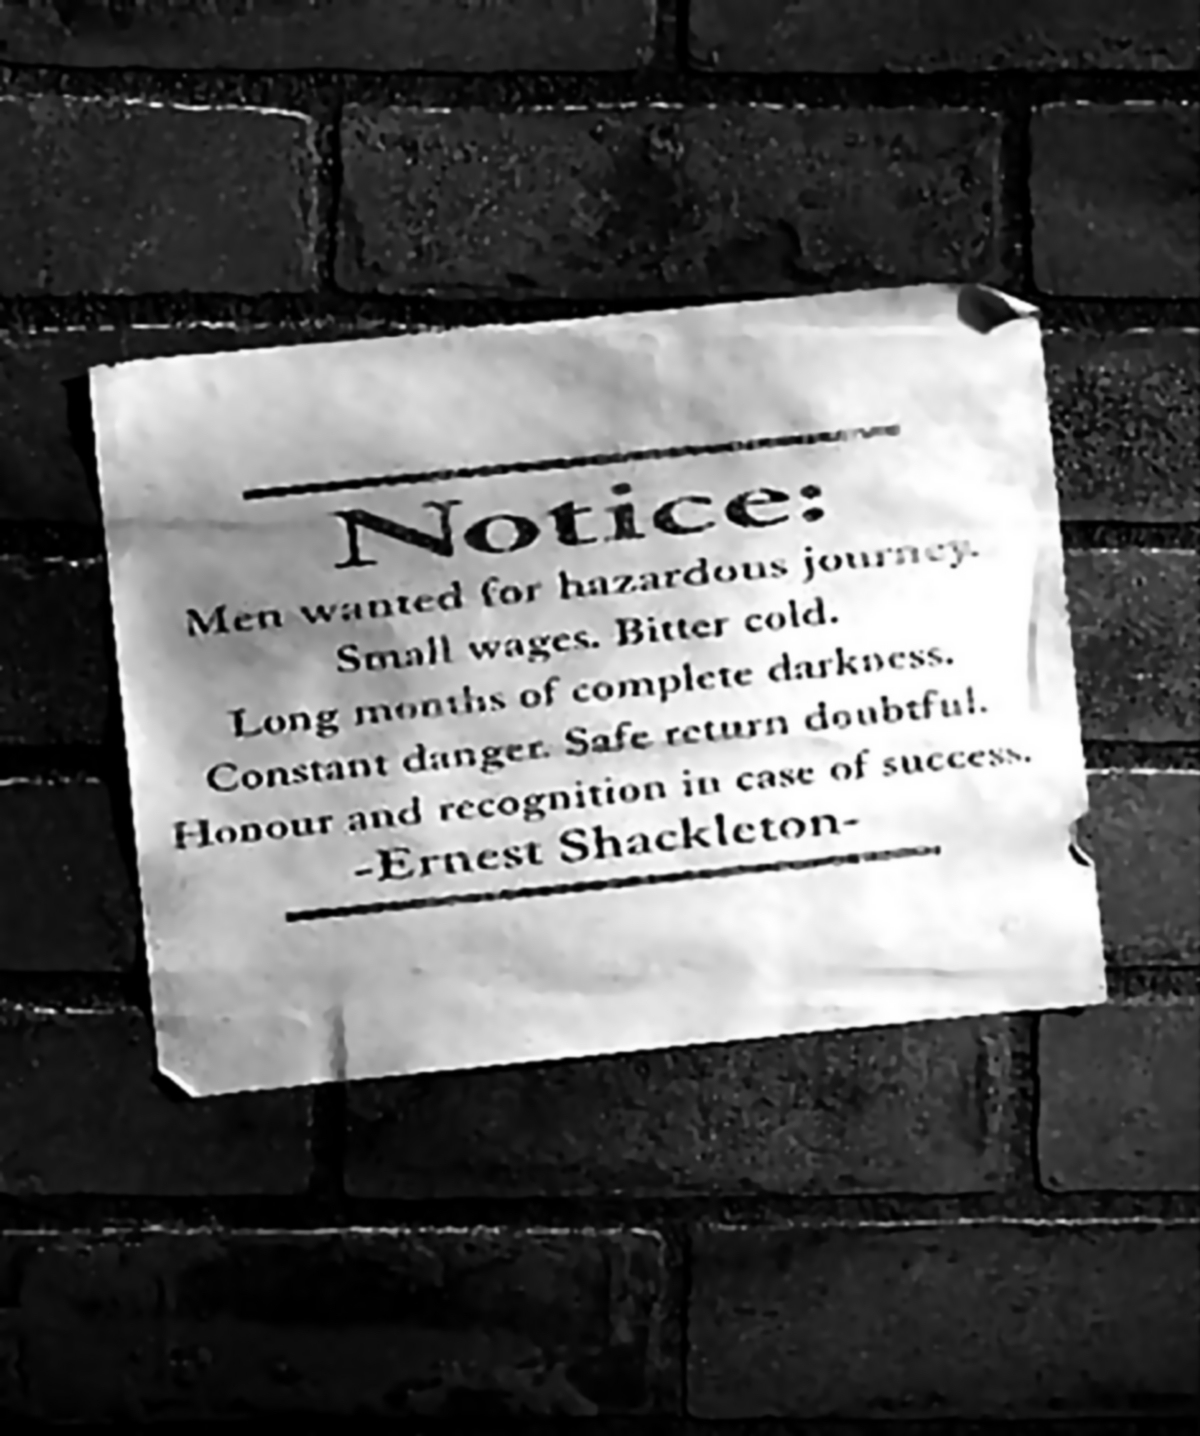 Notice:
Men wanted for hazardous journey.
Small wages. Bitter cold.
Long months of complete darkness.
Constant danger. Safe return doubtful.
Honour and recognition in case of success.
-Ernest Shackleton-